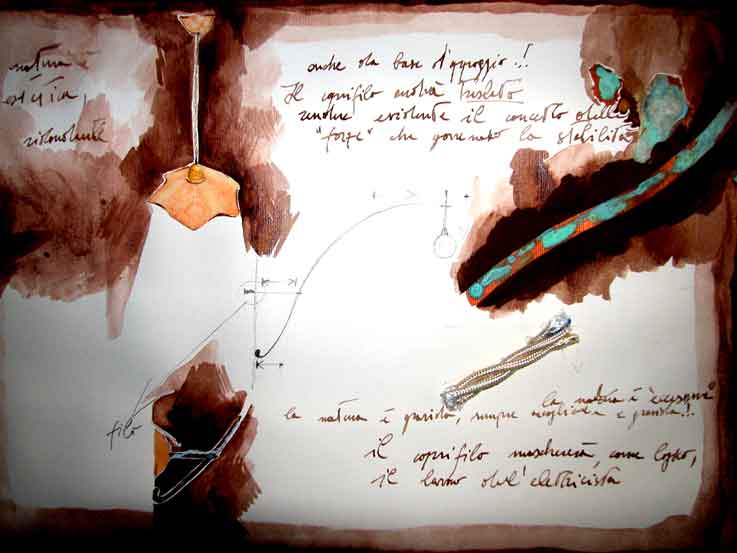 natura è
estetica,
ridondante
anche la base d'appoggio!!
Il coprifilo andrà traslato
rende evidente il concetto delle
"forze" che governano la stabilità
filo
la natura è "eccessiva"
la natura è garista, sempre e precisa!!
il coprifilo maschererà, come logico,
il lavoro dell'elettricista